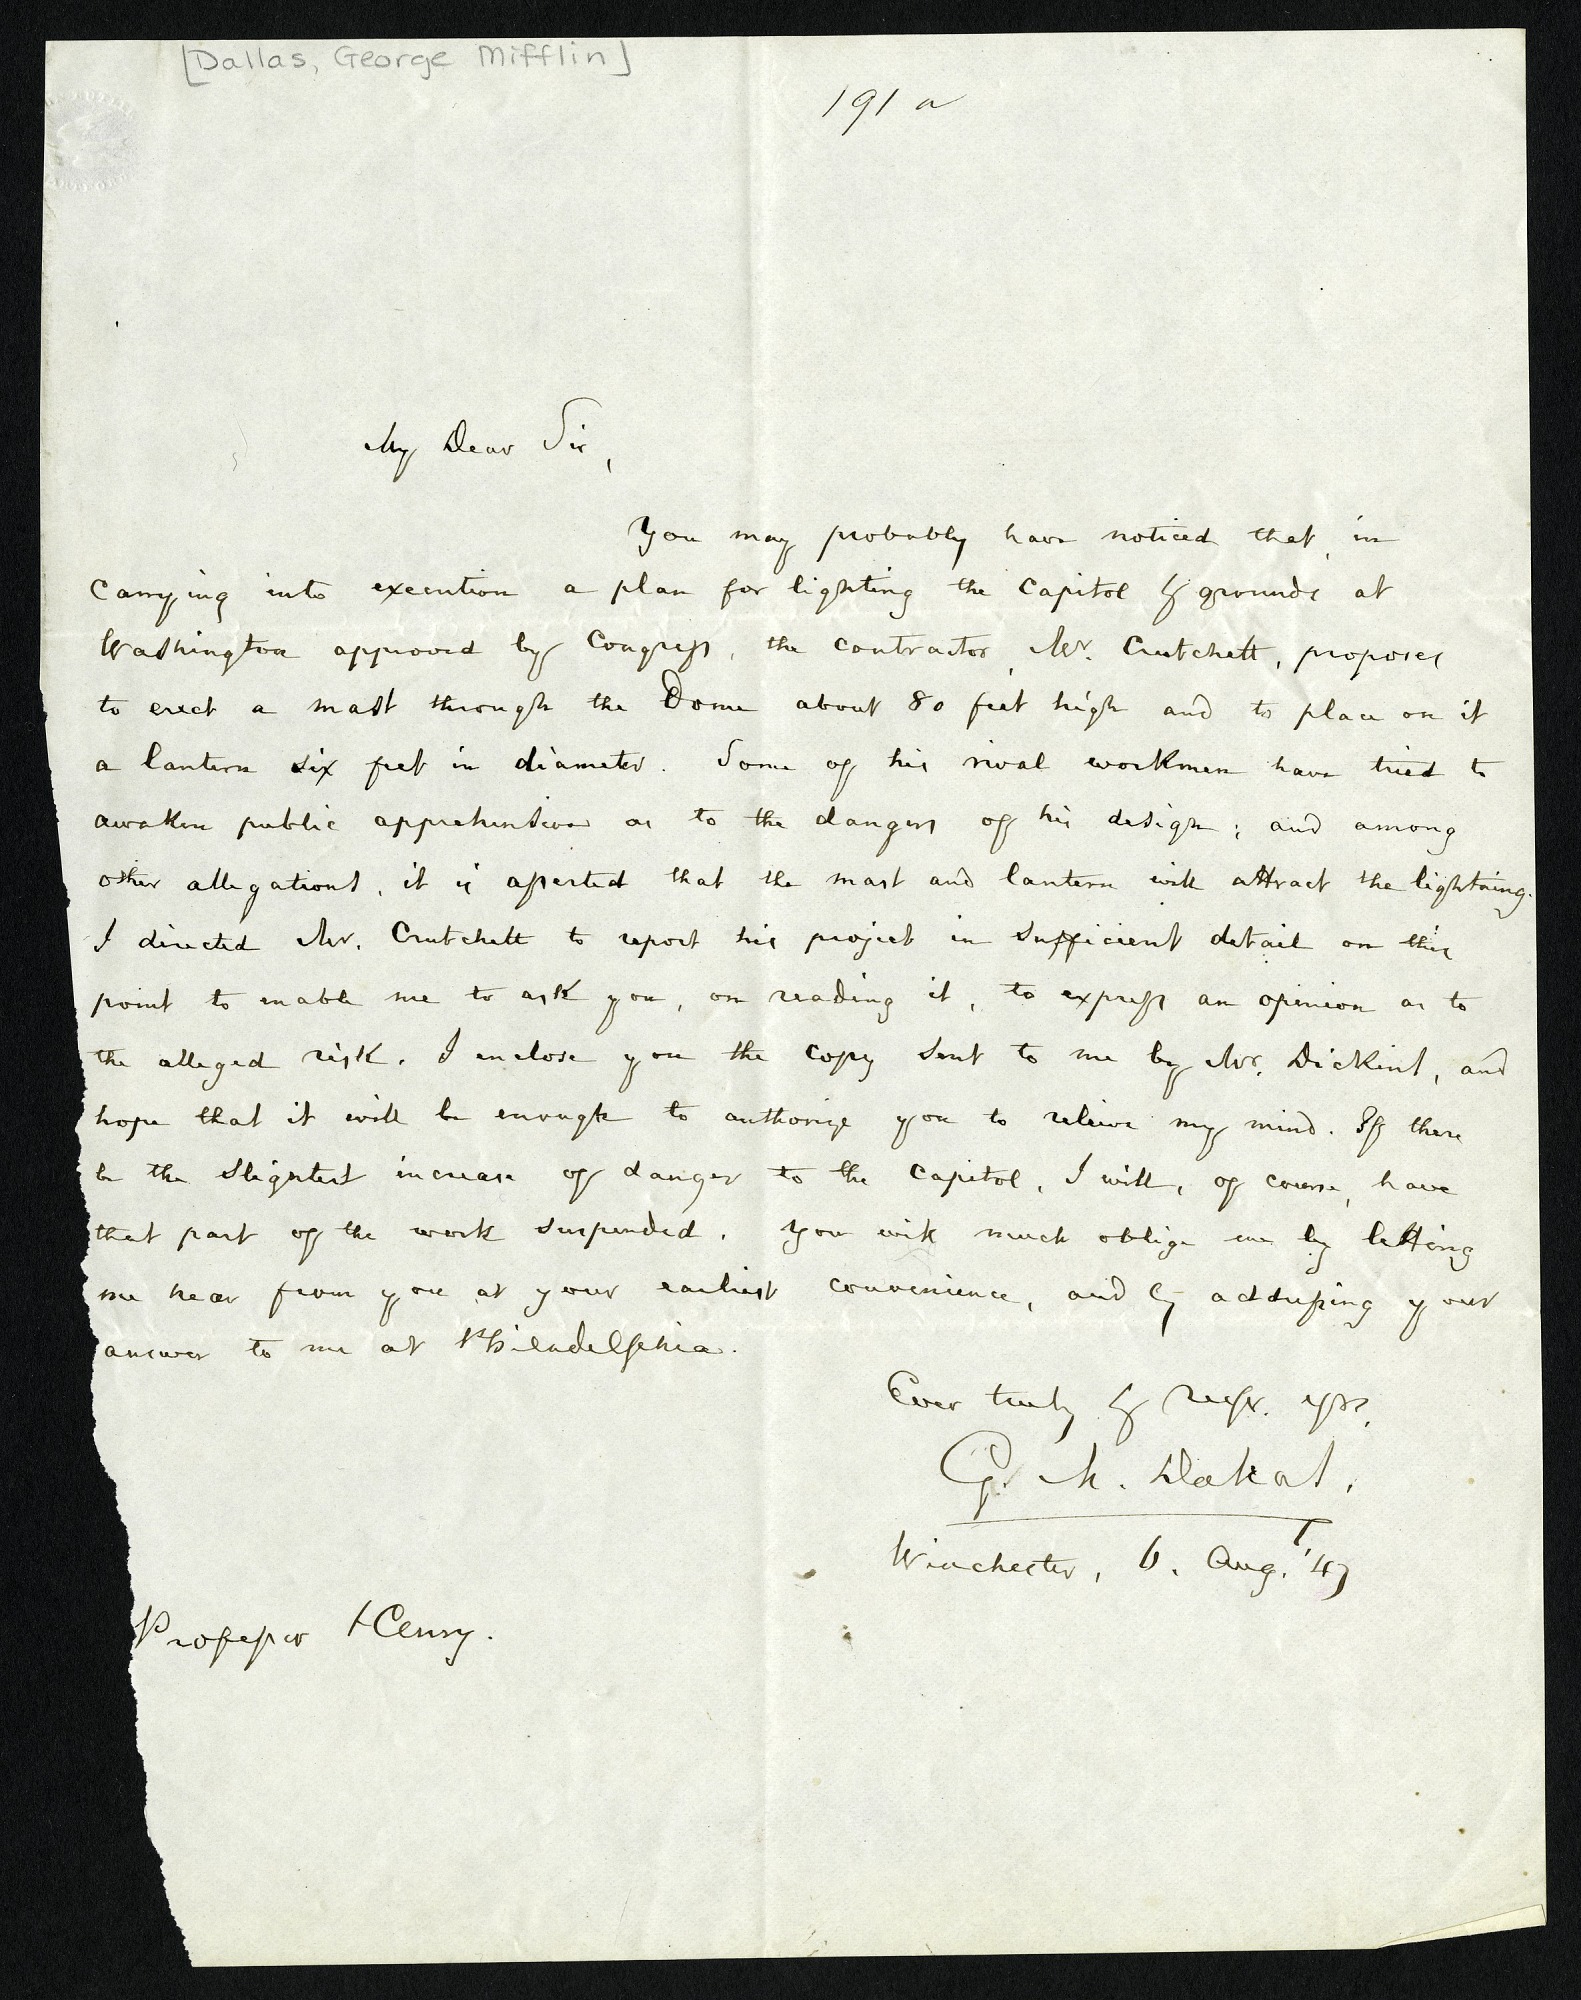 [Dallas, George Mifflin]
191 a
My Dear Sir,
You may probably have noticed that, in
carrying into execution a plan for lighting the Capitol & grounds at
Washington approved by Congress, the contractor, Mr. Crutchett, proposes
to erect a mast through the Dome about 80 feet high and to place on it
a lantern six feet in diameter. Some of his rival workmen have tried to
awaken public apprehension as to the dangers of his design; and among
other allegations, it is asserted that the mast and lantern will attract the lightning.
I directed Mr. Crutchett to report his project in sufficient detail on this
point to enable me to ask you, on reading it, to express an opinion as to
the alleged risk. I enclose you the copy sent to me by Mr. Dickins, and
hope that it will be enough to authorize you to relieve my mind. If there
be the slightest increase of danger to the Capitol, I will, of course, have
that part of the work suspended. You will much oblige me by letting
me hear from you at your earliest convenience, and by addressing your
answer to me at Philadelphia.
Ever truly & respy. yrs,
G. M. Dallas.
Winchester, 6. Aug. '47
Professor Henry.